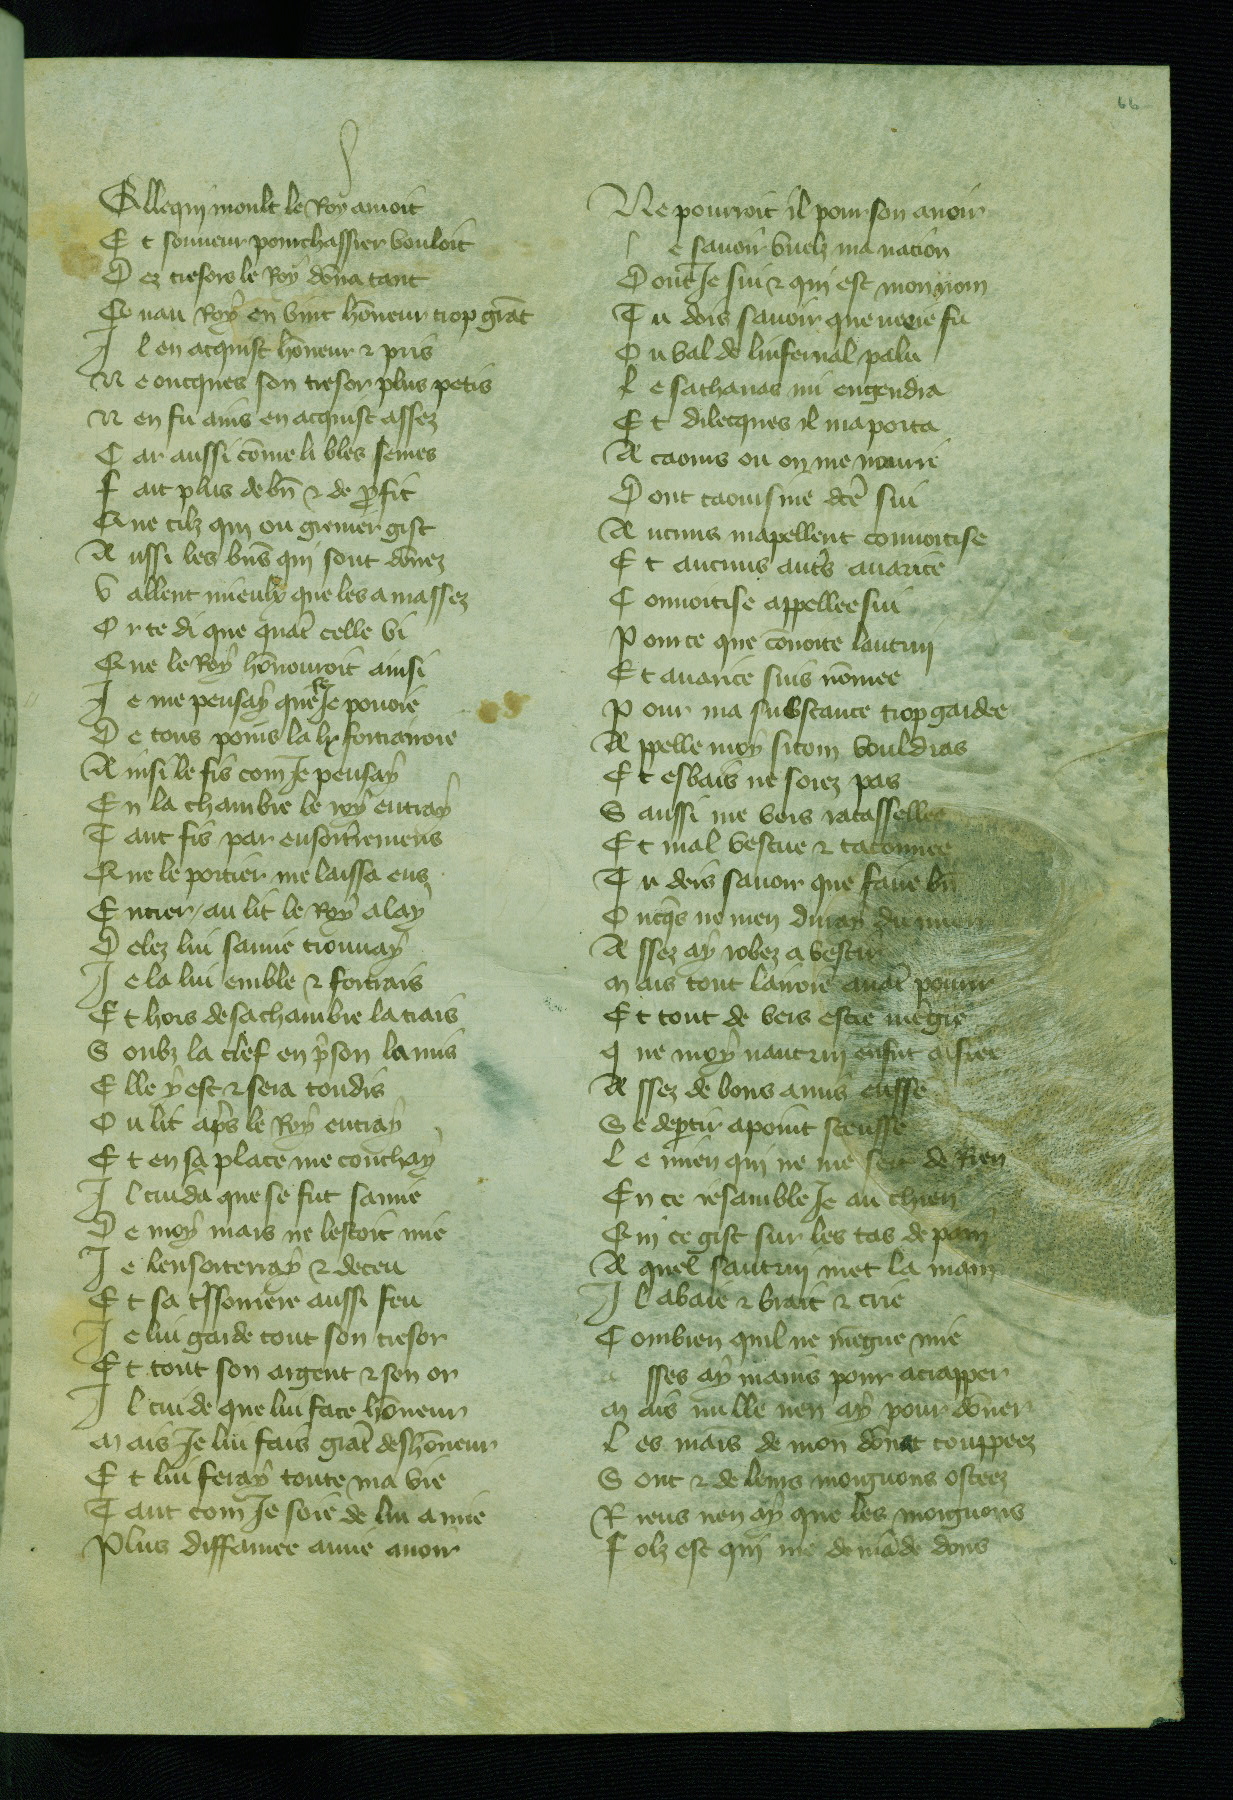 66
Elle qui moult le Roy amoit
Et sonneur pourchassier vouloit
Dez tresors le Roy dōna tant
Qe nau Roy en vint hōneur trop grāt
Il en acquist hōneur & pris
Ne oncques son tresor plus petis
Nen fu ains en acquist assez
Car aussi cōme li bles semes
Fait plus de bn̄ & de ꝓfit
Que cilz qui ou grenier gist
Aussi les bn̄s qui sont dōnez
Vallent mieulx que les amassez
Or te di que quāt celle vi
Que le Roy hōnouroit ainsi
Je me pensay que se Je povoie
De tous poins la ly fortrairoie
Ainsi le fis com Je pensay
En la chambre le roy entray
Tant fis par ensorteremens
Que le portier me laissa ens
Entier au lit le Roy alay
Delez lui samie trouuay
Je la lui emble & fortrais
Et hors de sa chambre la trais
Soubz la clef en p̄son la mis
Elle y est & sera toudis
Ou lit ap̄s le Roy entray
Et en sa place me couchay
Il cuida que se fut samie
De moy mais ne lestoit mie
Je lensorterray & deceu
Et sa t̄ssoriere aussi feu
Je lui garde tout son tresor
Et tout son argent & son or
Il cuide que lui face hōneur
Mais Je lui fais grāt deshōneur
Et lui feray toute ma vie
Tant com Je soie de lui amie
Plus diffamee amie avoir
Ne pourroit il pour son avoir
e savoir vuelz ma nation
Dont Je sui & qui est mon nom
Tu dois savoir que neee fu
Ou val de linfernal palu
Le sathanas mi engendra
Et dilecques il maporta
A caours ou on me nourri
Dont caoursine dc̄e sui
Aucuns mapellent convoitise
Et aucuns aut̄s avarice
Convoitise appellee sui
Pour ce que cōvoite lautrui
Et avarice suis nōmee
Pour ma substance trop gardee
Appelle moy si com vouldras
Et esbais ne soiez pas
Saussi me vois ratassellee
Et mal vestue & taconnee
Tu dois savoir que faire bn̄
Oncq̄s ne men diray du mien
Assez ay robez a vestir
Mais tout lairoie avāt pourrir
Et tout de vers estre mēgie
Que moy nautrui en fut aisiee
Assez de bons amis eusse
Se dep̄tir a point sceusse
Le mien qui ne me sert de Rien
En ce resamble Je au chien
Qui ce gist sur les tas de pain
A quel sautrui met la main
Il abaie & brait & crie
Combien quil ne mēgue mie
sses ay mains pour atrapper
Mais nulle nen ay pour dōner
Les maīs de mon dōner couppeez
Sont & de leurs moignons osteez
Riens nen ay que les moignons
Folz est qui me demāde dons